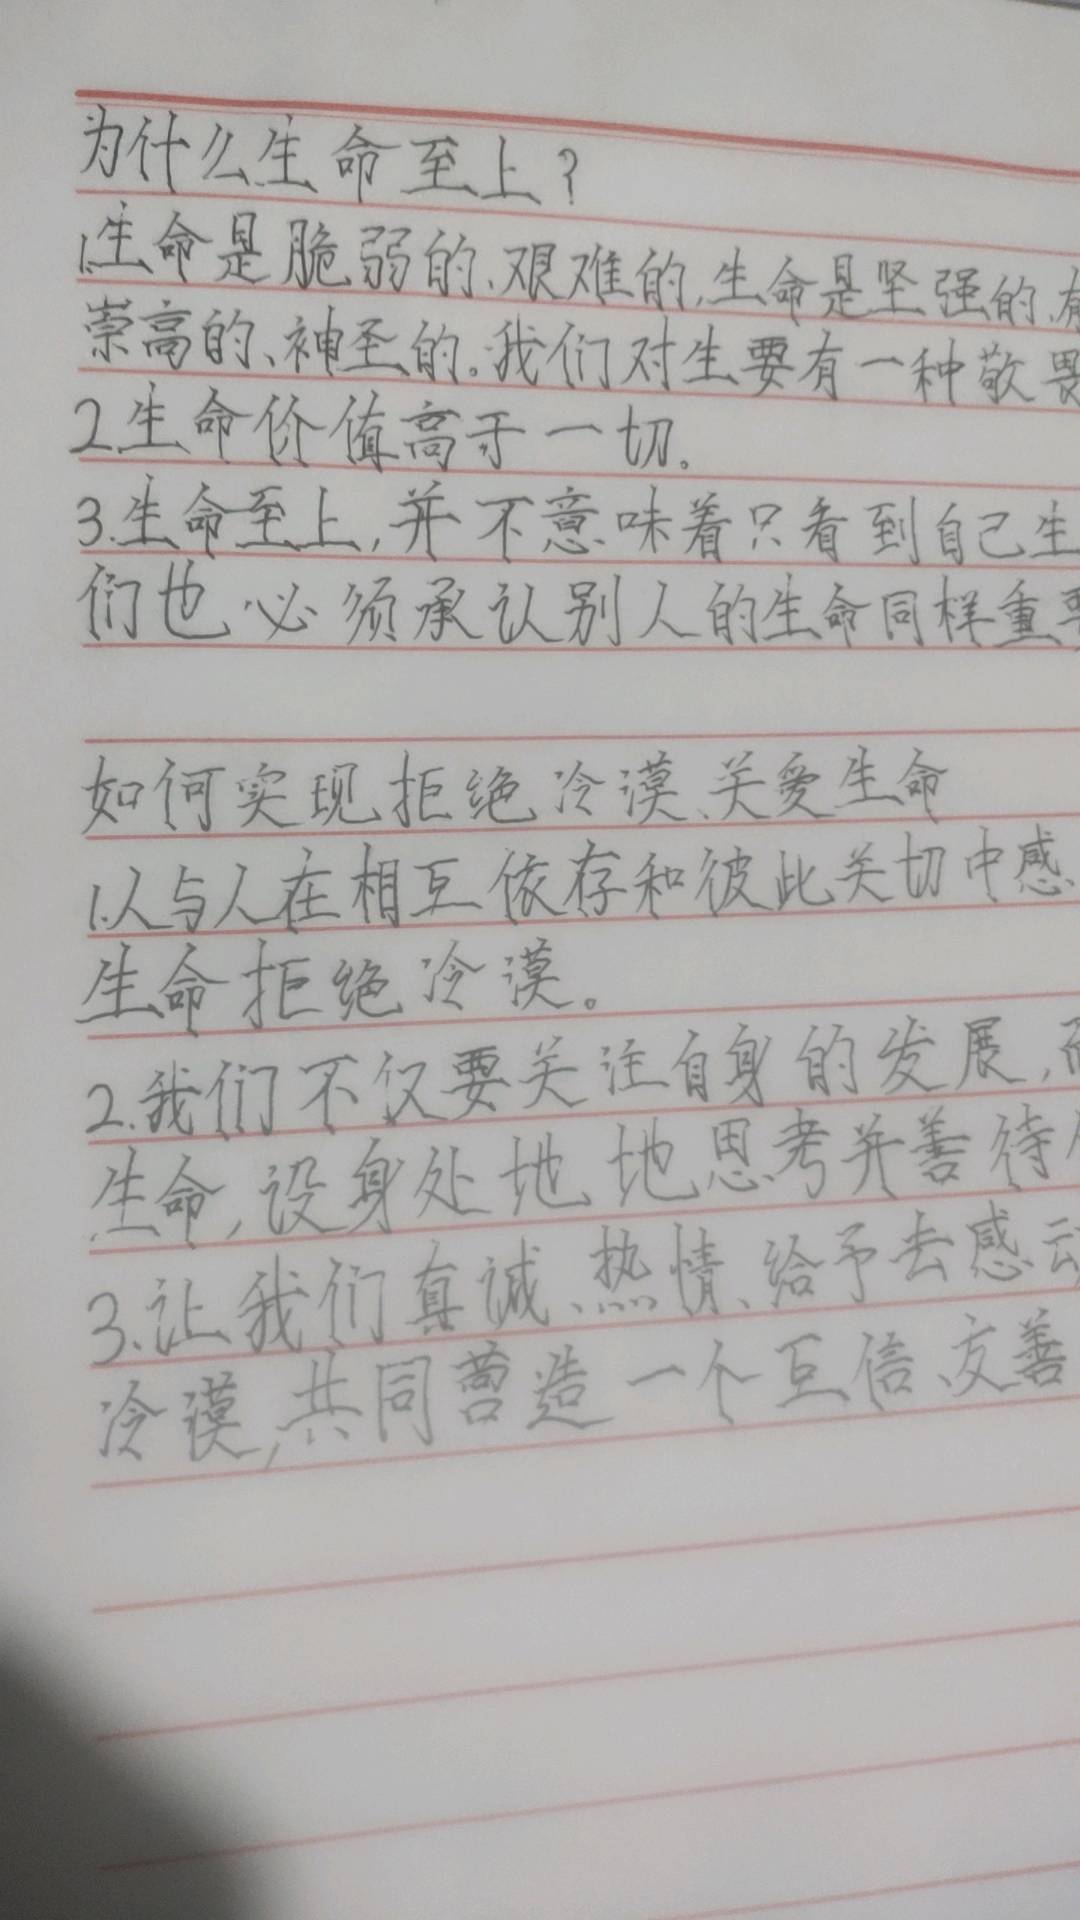 为什么生命至上?
1.生命是脆弱的、艰难的,生命是坚强的、有
崇高的、神圣的。我们对生要有一种敬畏
2.生命价值高于一切。
3.生命至上,并不意味着只看到自己生
们也必须承认别人的生命同样重要
如何实现拒绝冷漠、关爱生命
1.人与人在相互依存和彼此关切中感
生命拒绝冷漠。
2.我们不仅要关注自身的发展,而
生命,设身处地地思考并善待
3.让我们真诚、热情、给予去感动
冷漠,共同营造一个互信、友善